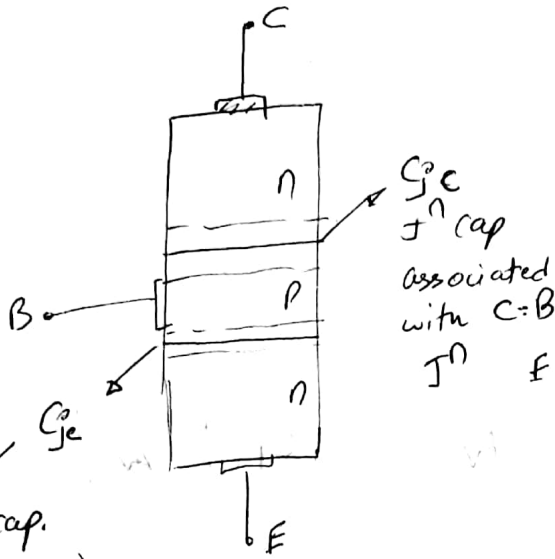 C
n
Cjc
Jⁿ cap
associated
with C-B
Jⁿ E
B
p
n
Cje
cap.
E